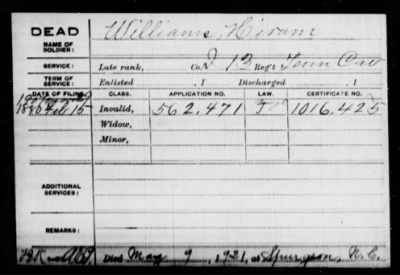 DEAD
NAME OF SOLDIER:
Williams, Hiram
SERVICE:
Late rank, Co. I 13 Reg't Tenn Cav
TERM OF SERVICE:
Enlisted , 1 Discharged , 1
DATE OF FILING. CLASS. APPLICATION NO. LAW. CERTIFICATE NO.
15 Invalid, 562,471 1016,425
Widow,
Minor,
ADDITIONAL SERVICES:
REMARKS:
Died May 9, 1921, at N.C.